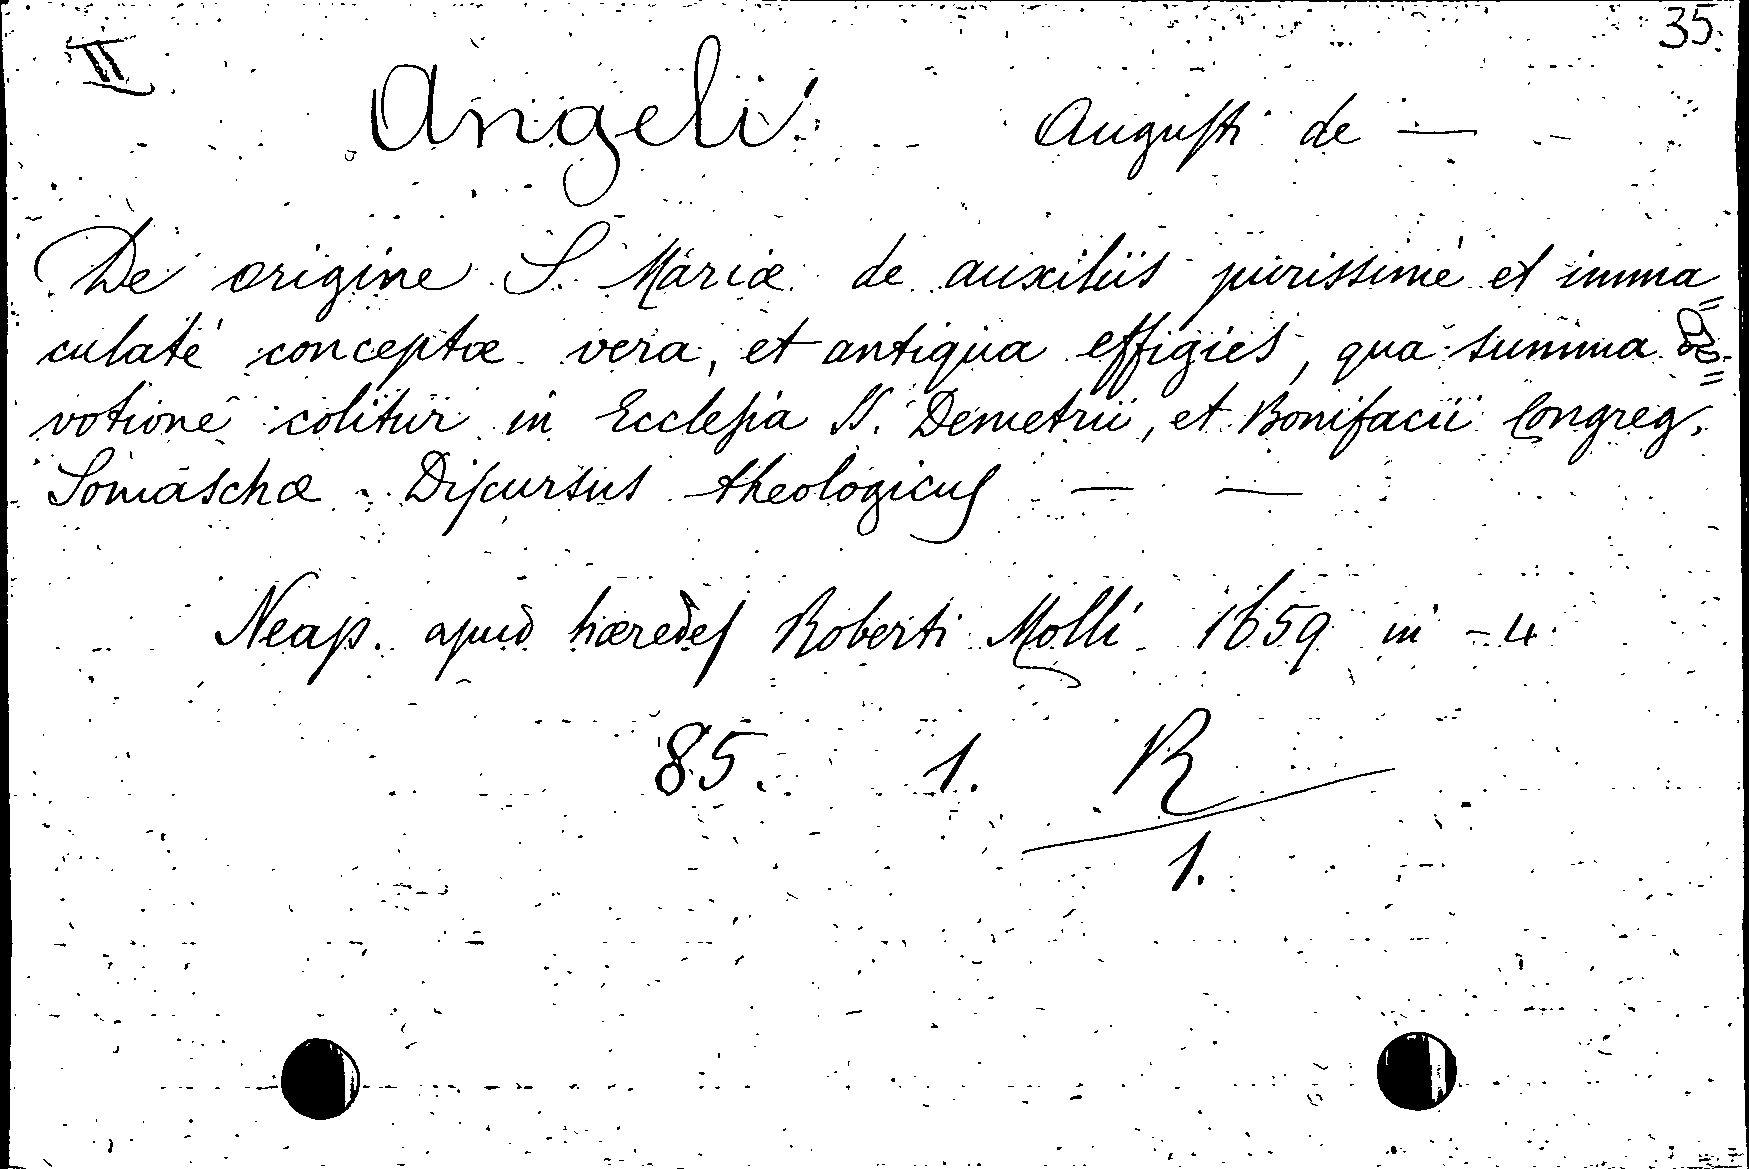 II
35.
Angeli Augusti de —
De origine S. Mariæ de auxiliis purissime et imma
culatè conceptæ vera, et antiqua effigies, qua summa de=
votione colitur in Ecclesia SS. Demetrii, et Bonifacii Congreg.
Somaschæ - Discursus theologicus — —
Neap. apud hæredes Roberti Molli 1659 in - 4
85. 1. R
1.